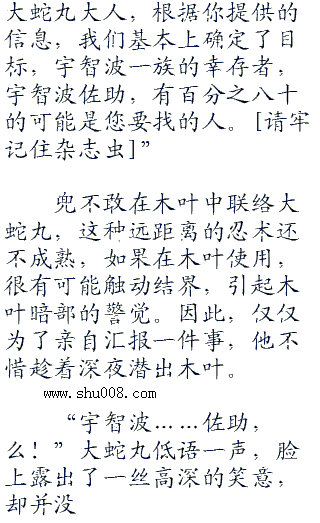 大蛇丸大人，根据你提供的
信息，我们基本上确定了目
标，宇智波一族的幸存者，
宇智波佐助，有百分之八十
的可能是您要找的人。[请牢
记住杂志虫]”
兜不敢在木叶中联络大
蛇丸，这种远距离的忍术还
不成熟，如果在木叶使用，
很有可能触动结界，引起木
叶暗部的警觉。因此，仅仅
为了亲自汇报一件事，他不
惜趁着深夜潜出木叶。
www.shu008.com
“宇智波……佐助，
么！”大蛇丸低语一声，脸
上露出了一丝高深的笑意，
却并没